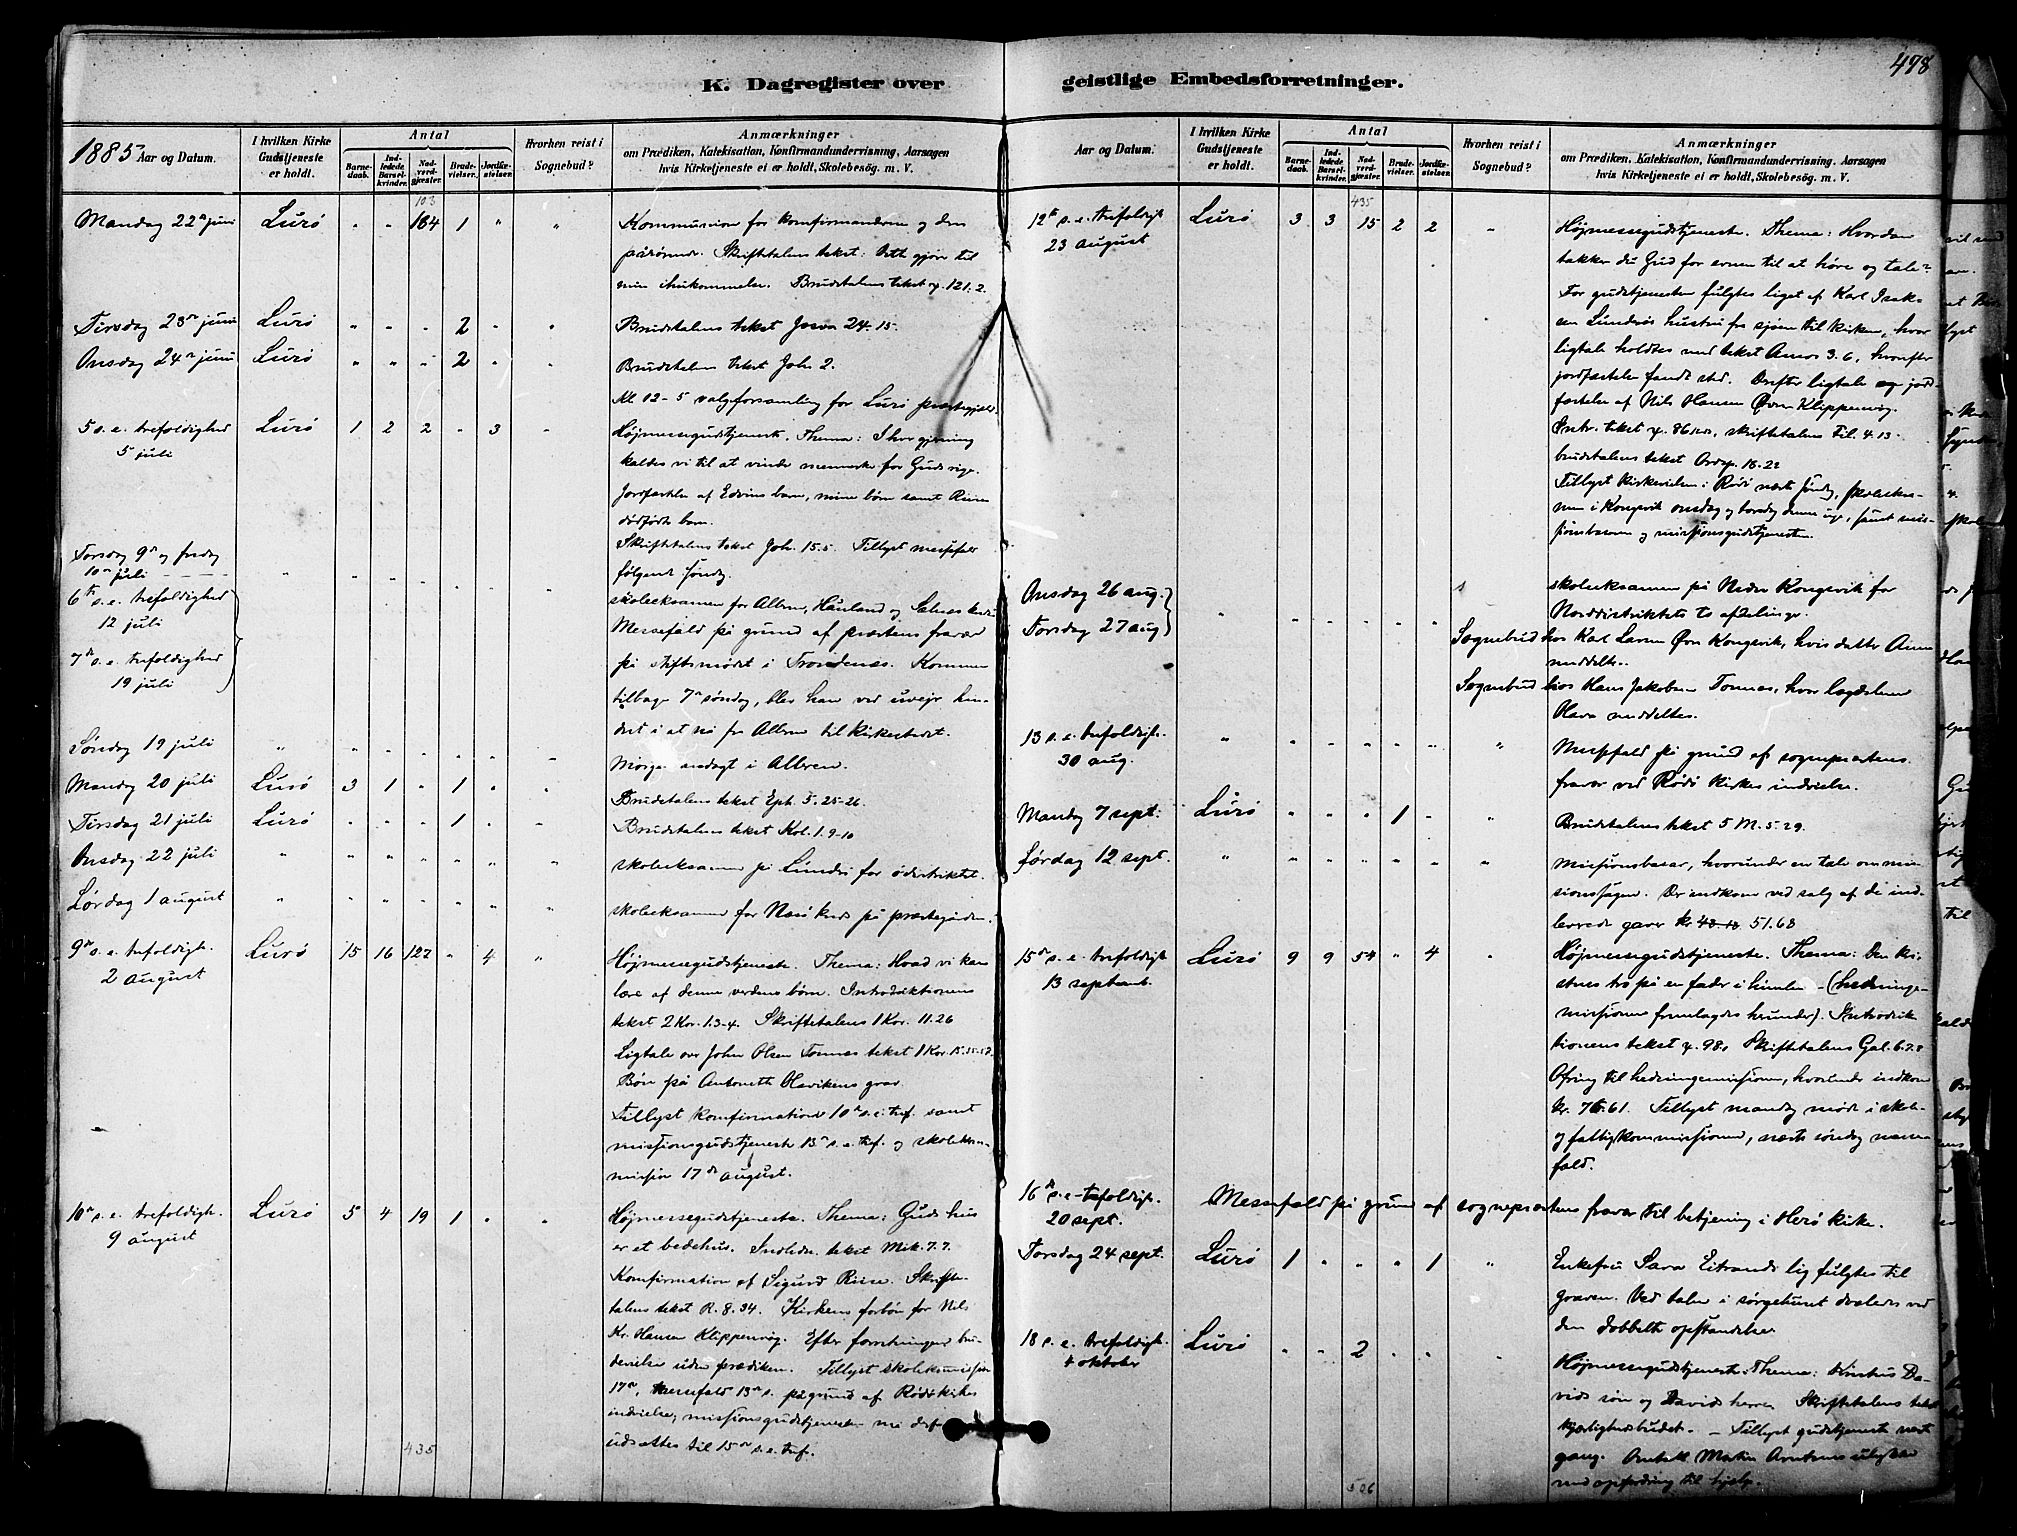 498
K. Dagregister over geistlige Embedsforretninger.
1885 Aar og Datum.
I hvilken Kirke Gudstjeneste er holdt.
Antal
Barnedaab.
Indledede Barselkvinder.
Nadverdgjæster.
Brudevielser.
Jordfæstelser.
Hvorhen reist i Sognebud?
Anmærkninger
om Prædiken, Katekisation, Konfirmandundervisning, Aarsagen
hvis Kirketjeneste ei er holdt, Skolebesøg. m. V.
103
Mandag 22de juni Lurø " " 164 1 " "
Kommunion for konfirmanderne og deres
pårørende. Skriftetalens tekst: Dette gjører til
min ihukommelse. Brudetalens tekst ψ. 121.2.
Tirsdag 23de juni Lurø " " " 2 " " Brudetalens tekst Josva 24-15.
Onsdag 24de juni Lurø " " " 2 " " Brudetalens tekst Joh 2.
Kl 12-5 valgforsamling for Lurø præstegjæld.
5 s. e. trefoldighed Lurø 1 2 2 " 3 "
5 juli
Højmessegudstjeneste. Thema: I hver gjerning
kaldes vi til at vinde mennesker for Guds rige.
Jordfæstelse af Edvins barn, mine børn samt Riises
dødfødte barn.
Skriftetalens tekst Joh. 15.5. Tillyst messefald
følgende søndag.
Torsdag 9de og fredag
10de juli
skoleeksamen for Aldren, Hauland og Selnes kreds
6te s. e. trefoldighed
12 juli
7de s. e. trefoldighed
19 juli
Messefald på grund af præstens fravær
på stiftsmødet i Trondenæs. Kommen
tilbage 7de søndag, blev han ved uvejr hin-
dret i at nå fra Aldren til Kirkestedet.
Søndag 19 juli " " " " " " "
Morgenandagt i Aldren.
Mandag 20 juli Lurø 3 1 " 1 " " Brudetalens tekst Eph. 5. 25-26.
Tirsdag 21 juli Lurø " " " 1 " " Brudetalens tekst Kol. 1. 9-10
Onsdag 22 juli " " " " " " " skoleeksamen på Lundø for ødistriktet.
Lørdag 1 august " " " " " " " skoleeksamen for Næsø kreds på præstegården.
9de s. e. trefoldigh. Lurø 15 16 127 " 4 "
2 august
Højmessegudstjeneste. Thema: Hvad vi kan
lære af denne verdens børn. Introduktionens
tekst 2 Kor. 1.3-4. Skriftetalens 1 Kor. 11.26
Ligtale over John Olsen Tonnes tekst 1 Kor 15.
Bøn på Antonette Olavikens grav.
Tillyst konfirmation 10de s.e. tref. samt
missionsgudstjeneste 13de s.e. tref. og skolekom-
mission 17de august.
10de s. e. trefoldigh. Lurø 5 4 19 1 " "
9 august
Højmessegudstjeneste. Thema: Guds hus
er et bedehus. Indledn. tekst Mik. 7.7.
Konfirmation af Sigurd Riise. Skrifte-
talens tekst R. 8.34. Kirkens forbøn for Nils
Kr. Hansen Klippenvåg. Efter forretningen bru-
devielse uden prædiken. Tillyst skolekommission
17de, Messefald 13de s. på grund af Rødø kirkes
indvielse, missionsgudstjenesten må derfor
udsættes til 15de s.e. tref.
435
Aar og Datum.
I hvilken Kirke Gudstjeneste er holdt.
Antal
Barnedaab.
Indledede Barselkvinder.
Nadverdgjæster.
Brudevielser.
Jordfæstelser.
Hvorhen reist i Sognebud?
Anmærkninger
om Prædiken, Katekisation, Konfirmandundervisning, Aarsagen
hvis Kirketjeneste ei er holdt, Skolebesøg. m. V.
435
12te s. e. trefoldigh Lurø 3 3 15 2 2 "
23 august
Højmessegudstjeneste. Thema: Hvordan
takker du Gud for evnen til at høre og tale?
Før gudstjenesten fulgtes liget af Karl Isak-
sen Lundøs hustru fra sjøen til kirken, hvor
ligtale holdtes med tekst Amos 3.6, hvorefter
jordfæstelse fandt sted. Derefter ligtale og jord-
fæstelse af Nils Hansen Øvre Klippenvåg.
Intr. tekst ψ. 86, skriftetalens Fil. 4.13.
brudetalens tekst Ordsp. 18.22
Tillyst kirkevielsen i Rødø næste søndag, skoleeksa-
men i Kongsvik onsdag og torsdag denne uge, samt mis-
sionsbasar og missionsgudstjenesten.
Onsdag 26 aug.
Torsdag 27 aug
skoleeksamen på Nedre Kongsvik for
Norddistriktets to afdelinger.
Sognebud hos Karl Larsen Øvre Kongsvik, hvis datter Anne
meddeltes.
Sognebud hos Hans Jakobsen Tonnes, hvor lægdslem
Olava meddeltes.
13 s. e. trefoldigh. " " " " " " "
30 aug.
Messefald på grund af sognepræstens
fravær ved Rødø kirkes indvielse.
Mandag 7 sept. Lurø " " " 1 " " Brudetalens tekst 5 M. 5.29.
Lørdag 12 sept. " " " " " " "
Missionsbasar, hvorunder en tale om mis-
sionssagen. Der indkom ved salg af de ind-
leverede gaver kr 48.18 51.68
15de s. e. trefoldigh Lurø 9 9 54 " 4 "
13 septemb.
Højmessegudstjeneste. Thema: Den kri-
stnes tro på en fader i himlen - (hedninge-
missionen fremlagdes herunder). Introduk-
tionens tekst ψ. 98. Skriftetalens Gal. 6.7.8
Ofring til hedningemissionen, hvorunder indkom
kr. 76.61. Tillyst mandag møde i skole-
og fattigkommissionen, næste søndag messe-
fald.
16de s. e. trefoldigh.
20 sept.
Messefald på grund af sognepræstens fravær til betjening i Herø kirke.
Torsdag 24 sept. Lurø 1 " " " 1 "
Enkefru Sara Eitrands lig fulgtes til
graven. Ved talen i sørgehuset dvæledes ved
den dobbelte opstandelse.
18 s. e. trefoldigh. Lurø " " 2 " " "
4 oktober
Højmessegudstjeneste. Thema: Kristus Da-
vids søn og Davids herre. Skriftetalens tekst
kjærlighedsbudet. - Tillyst gudstjeneste næste
gang.
med opfordring til hjelp.
506